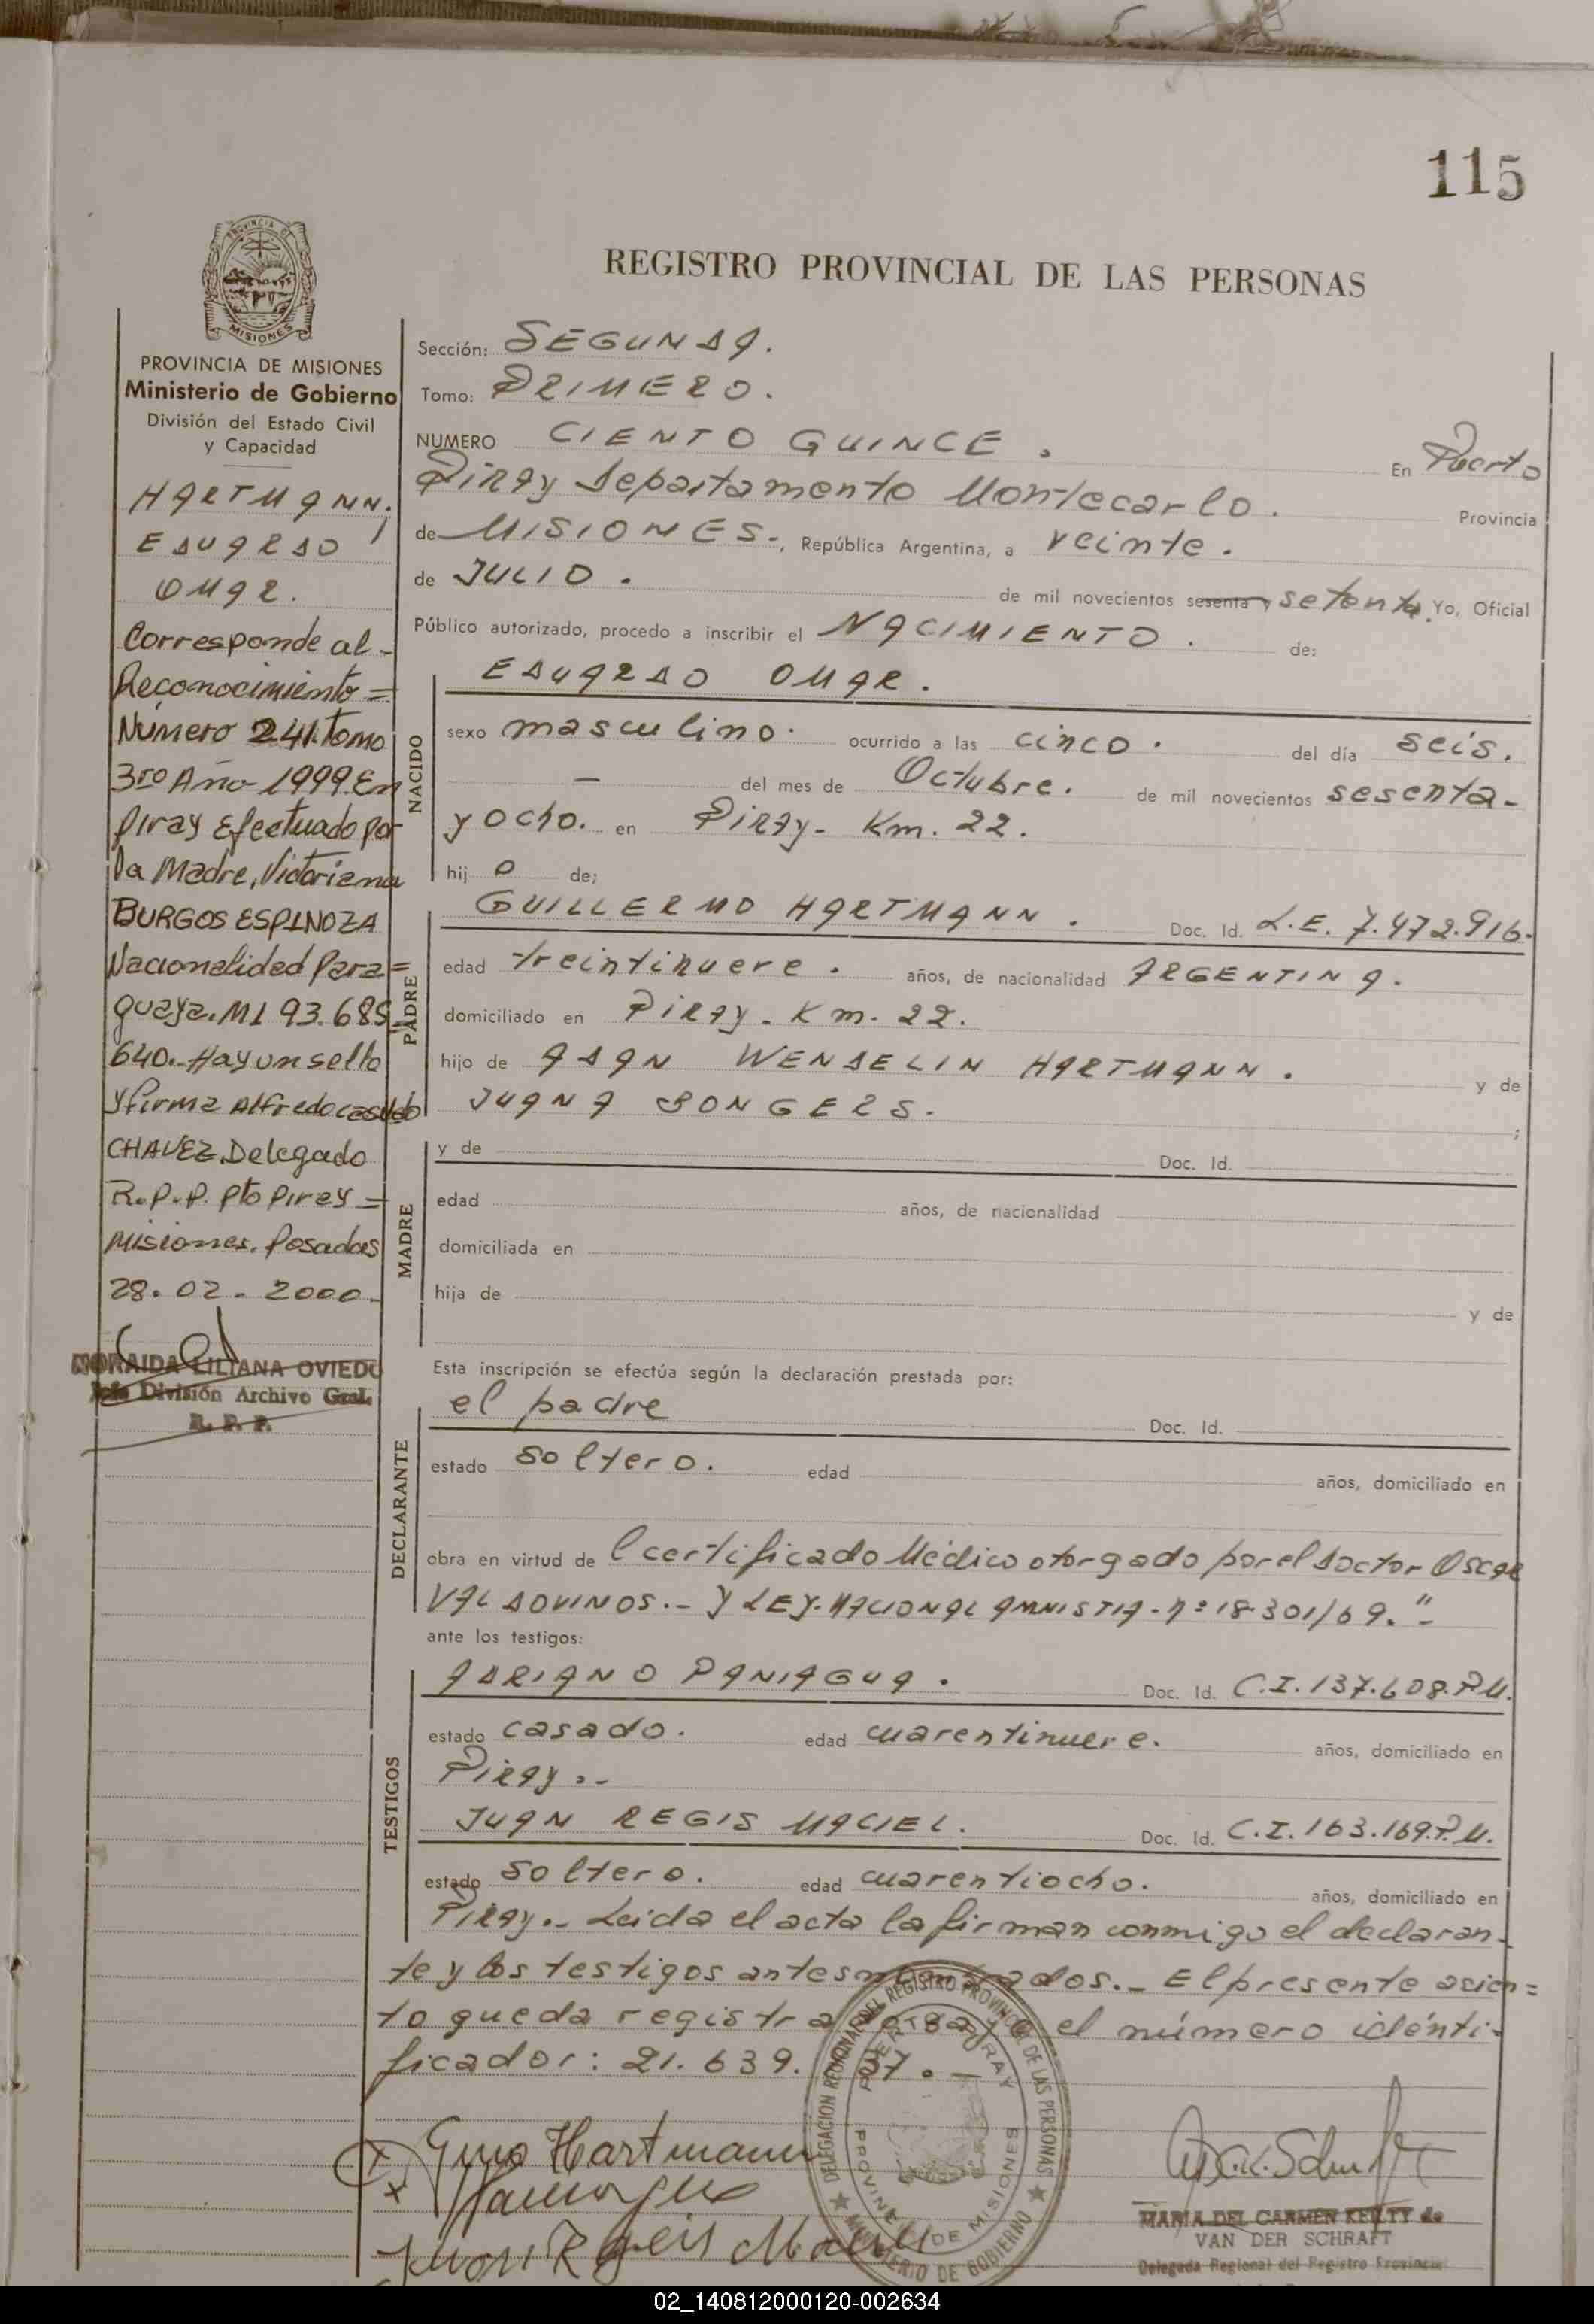 115
PROVINCIA DE
MISIONES
REGISTRO PROVINCIAL DE LAS PERSONAS
PROVINCIA DE MISIONES
Ministerio de Gobierno
División del Estado Civil
y Capacidad
HARTMANN.
EDUARDO
OMAR.
Corresponde al-
Reconocimiento=
Número 241.tomo
3ro Año-1999.En
Piray Efectuado por
la Madre, Victoriana
BURGOS ESPINOZA
Nacionalidad Para=
guaya. MI 93.685
640.-Hay un sello
y firma Alfredo
CHAVEZ Delegado
R.P.P. Pto Piray=
Misiones. Posadas
28.02.2000-
NORAIDA LILIANA OVIEDO
Jefe División Archivo Gral.
R. P. P.
Sección: SEGUNDA.
Tomo: PRIMERO.
NUMERO CIENTO QUINCE. En Puerto
Piray Departamento Montecarlo. Provincia
de MISIONES-, República Argentina, a veinte.
de JULIO. de mil novecientos sesenta y setenta. Yo, Oficial
Público autorizado, procedo a inscribir el NACIMIENTO. de:
EDUARDO OMAR.
NACIDO
sexo masculino. ocurrido a las cinco. del día seis.
— del mes de Octubre. de mil novecientos sesenta-
y ocho. en Piray- Km. 22.
hij o de;
GUILLERMO HARTMANN. Doc. Id. L.E. 7.472.916-
PADRE
edad treintinueve. años, de nacionalidad ARGENTINA.
domiciliado en Piray- Km. 22.
hijo de ADAN WENDELIN HARTMANN. y de
JUANA BONGERS. ;
MADRE
y de Doc. Id.
edad años, de nacionalidad
domiciliada en
hija de y de
Esta inscripción se efectúa según la declaración prestada por:
el padre Doc. Id.
DECLARANTE
estado soltero. edad años, domiciliado en
obra en virtud de l certificado Médico otorgado por el Doctor Oscar
VALDOVINOS.- Y LEY-NACIONAL AMNISTIA-nº18.301/69."-
ante los testigos:
TESTIGOS
ADRIANO PANIAGUA. Doc. Id. C.I.137.608.P.M.
estado casado. edad cuarentinueve. años, domiciliado en
Piray.-
JUAN REGIS MACIEL. Doc. Id. C.I.163.169.P.M.
estado soltero. edad cuarentiocho. años, domiciliado en
Piray.- Leida el acta la firman conmigo el declaran-
te y los testigos antes nombrados.- El presente asien=
to queda registrado bajo el número idénti-
ficador: 21.639. 37.-
DELEGACION REGIONAL DEL REGISTRO PROVINCIAL DE LAS PERSONAS
MINISTERIO DE GOBIERNO
PUERTO PIRAY
PROVINCIA DE MISIONES
Hartmann
Juan Regis Maciel
MARIA DEL CARMEN KEILTY de
VAN DER SCHRAFT
Delegada Regional del Registro Provincial
02_140812000120-002634